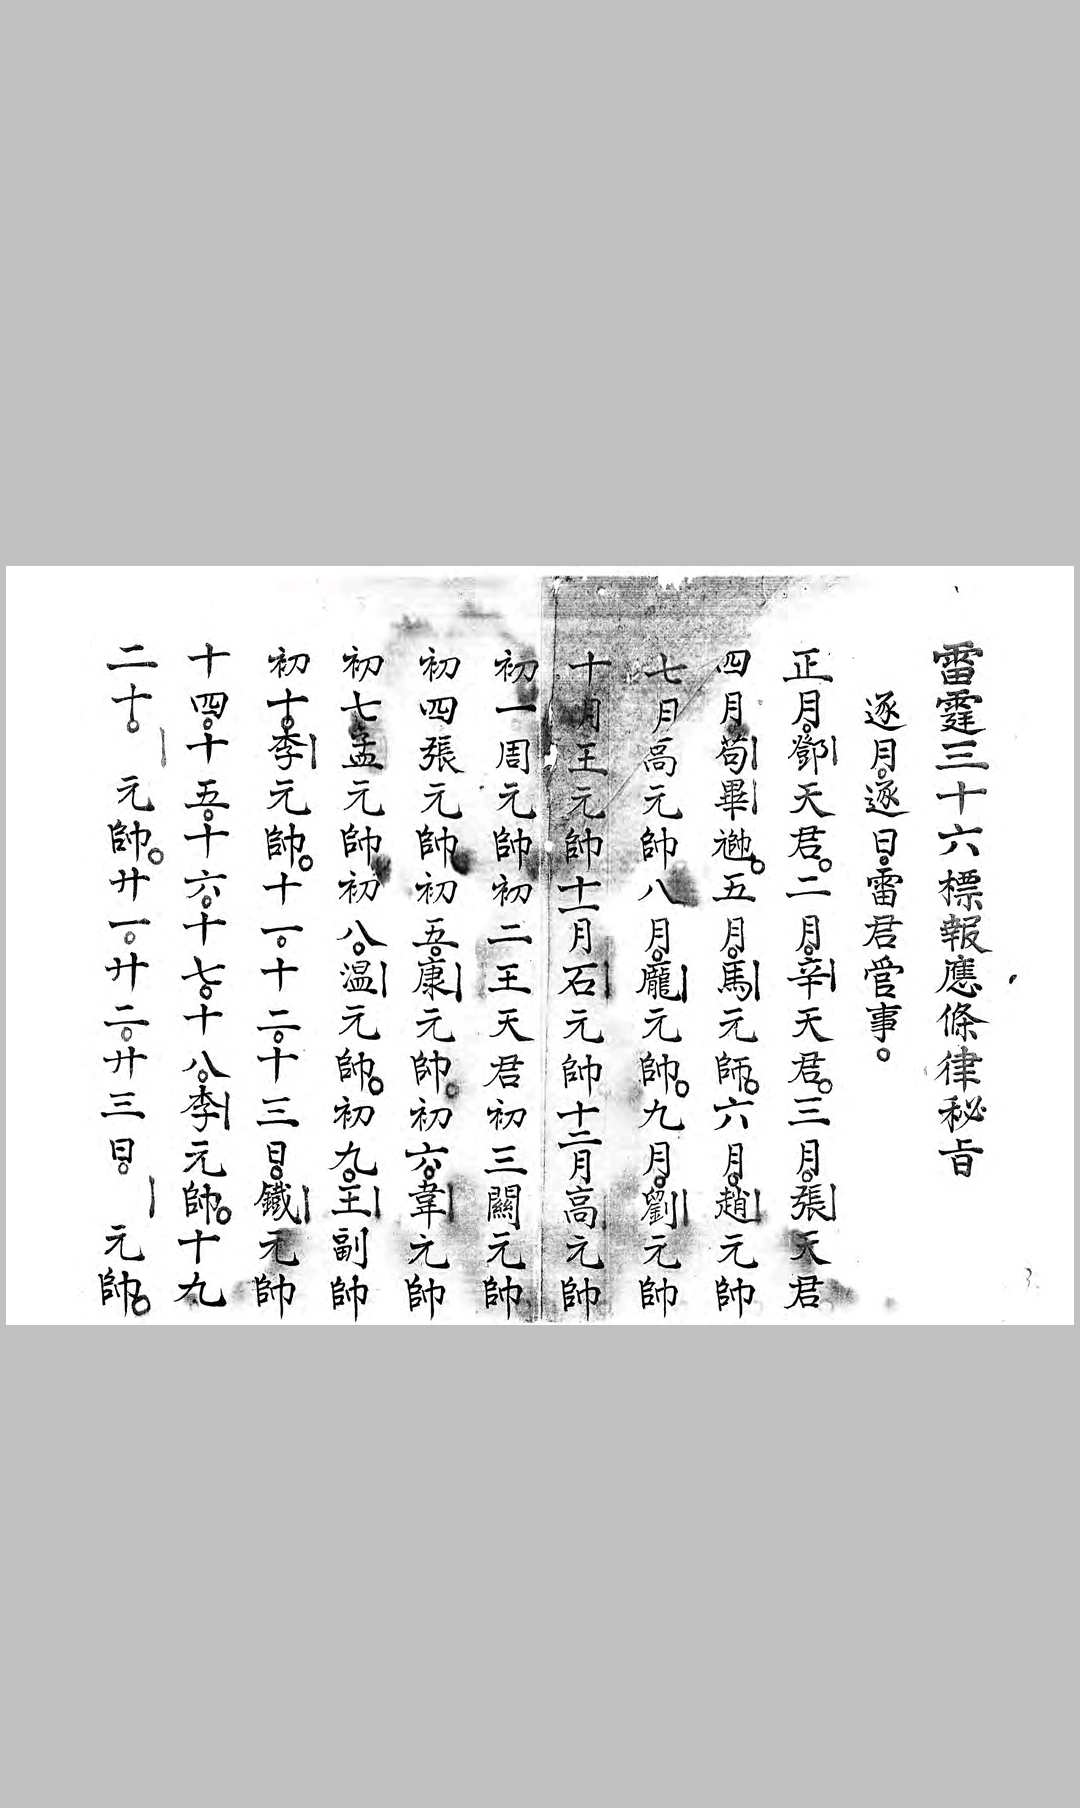 雷霆三十六標報應條律秘旨
逐月。逐日。雷君管事。
正月。鄧天君。二月。辛天君。三月。張天君
四月。苟畢。五月。馬元師。六月。趙元帥
七月高元帥八月。龐元帥。九月。劉元帥
十月王元帥十一月石元帥十二月高元帥
初一周元帥初二王天君初三關元帥
初四張元帥初五。康元帥。初六。韋元帥
初七。孟元帥初八。温元帥。初九。王副帥
初十。李元帥。十一。十二。十三日。鐵元帥
十四。十五。十六。十七。十八。李元帥。十九
二十。元帥。廿一。廿二。廿三日。元帥。
3.